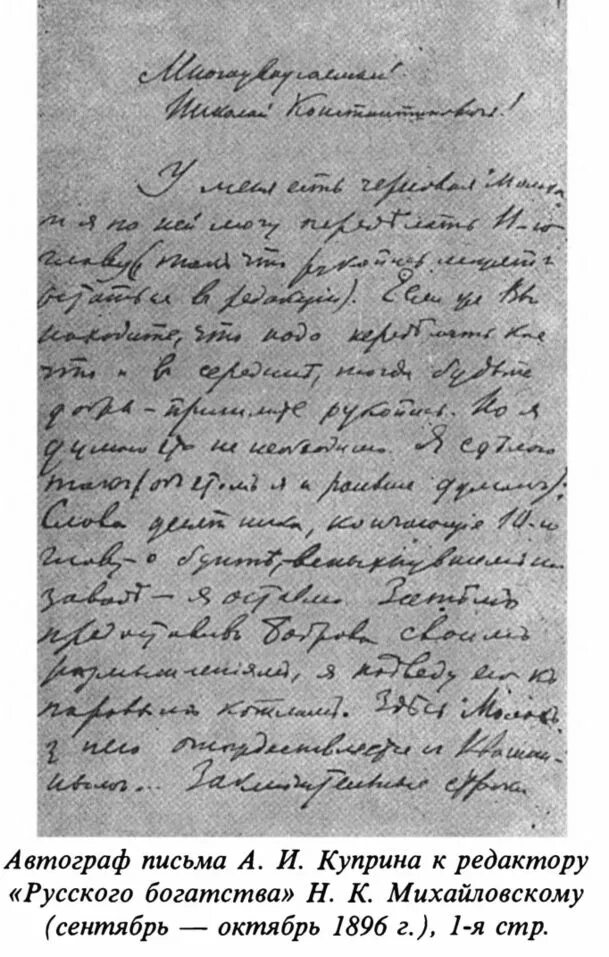 Многоуважаемый
Николай Константинович!
У меня есть черновая „Молоха"
и я по ней могу передѣлать 11-ю
главу (такъ что рукопись можетъ
остаться в редакціи). Если же Вы
находите, что надо передѣлать кое
что и в серединѣ, тогда будьте
добры – пришлите рукопись. Но я
думаю это не необходимо. Я сдѣлаю
такъ (объ этомъ я и раньше думалъ):
Слова десятника, кончающіе 10-ю
главу – о бунтѣ, вспыхнувшемъ на
заводѣ – я оставлю. Затѣмъ
предоставивъ Боброва своимъ
размышленіямъ, я подведу его къ
паровымъ котламъ. Здѣсь Молохъ
у него отождествляется с Квашни-
нымъ... Заключительныя строки
Автограф письма А. И. Куприна к редактору
«Русского богатства» Н. К. Михайловскому
(сентябрь — октябрь 1896 г.), 1-я стр.